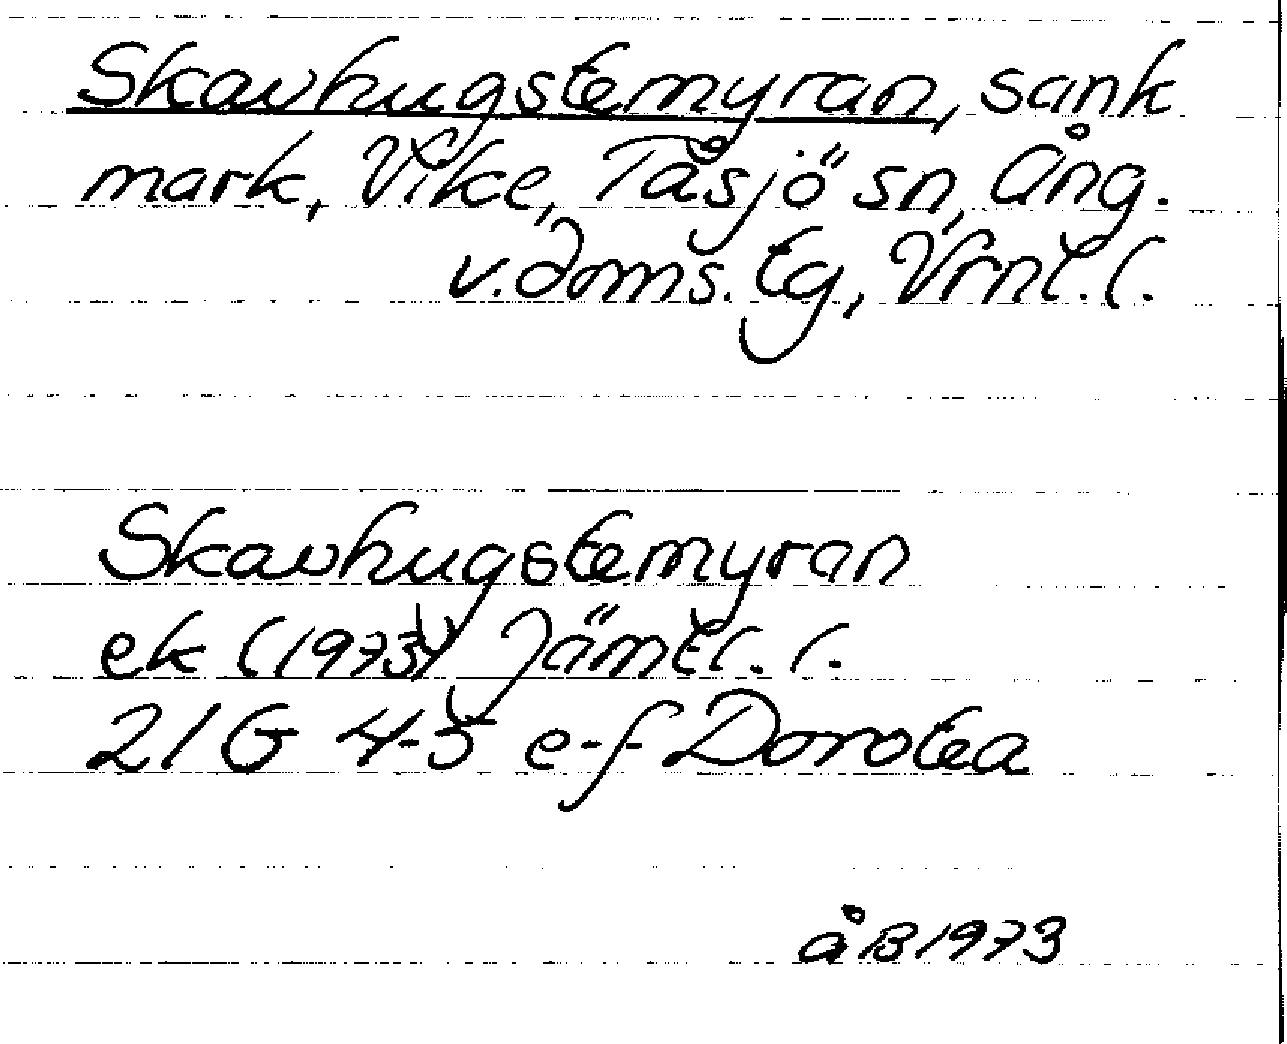 Skavhugstemyran, sank
mark, Vike, Tåsjö sn, Ång.
v. doms. tg, Vrnl. l.
Skavhugstemyran
ek (1973) Jämtl. l.
21 G 4-5 e-f Dorotea
åB 1973